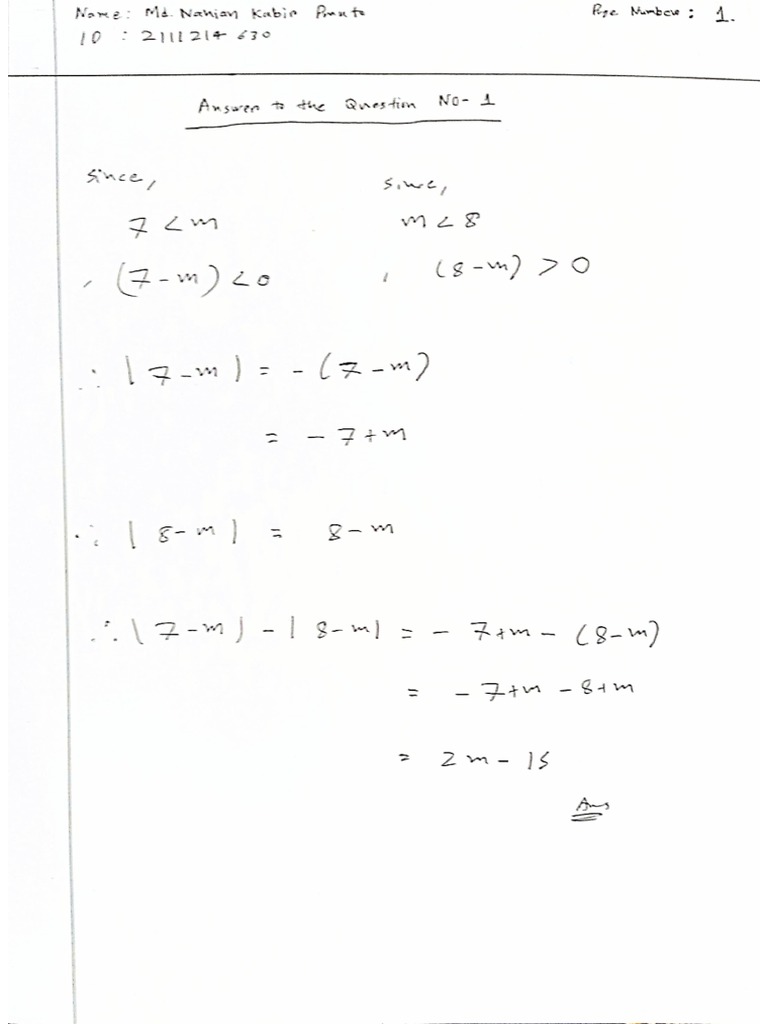 Name: Md. Nahian Kabir Pranto
Page Number: 1.
ID : 2111214 630
Answer to the Question No- 1
since,
since,
7 < m
m < 8
, (7-m) < 0
, (8-m) > 0
∴ |7-m| = -(7-m)
= -7+m
∴ |8-m| = 8-m
∴ |7-m| - |8-m| = -7+m-(8-m)
= -7+m-8+m
= 2m-15
Ans